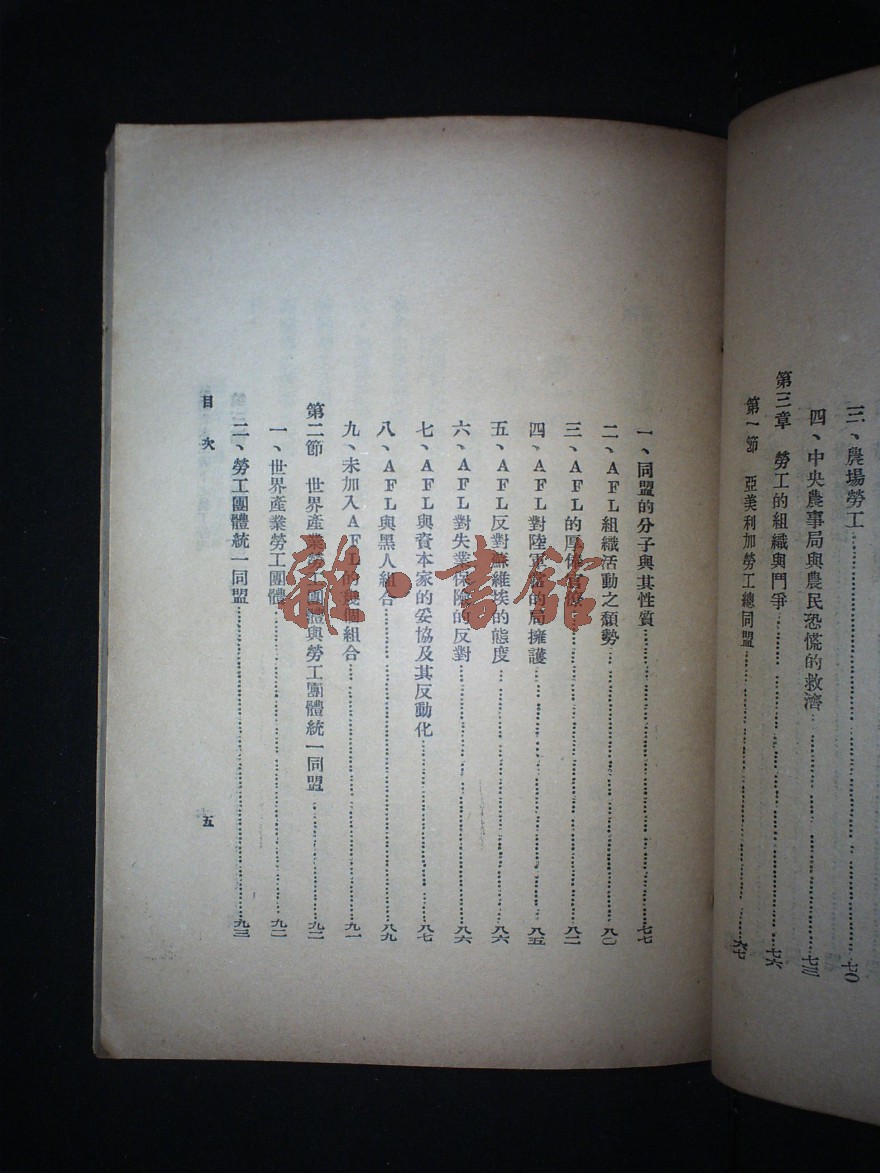 三、農場勞工……七〇
四、中央農事局與農民恐慌的救濟……七三
第三章 勞工的組織與鬥爭……七六
第一節 亞美利加勞工總同盟……六七
一、同盟的分子與其性質……七七
二、AFL組織活動之頹勢……八〇
三、AFL的厚俸官僚……八二
四、AFL對陸軍當的局擁護……八五
五、AFL反對蘇維埃的態度……八六
六、AFL對失業保險的反對……八六
七、AFL與資本家的妥協及其反動化……八七
八、AFL與黑人組合……八九
九、未加入AFL的幾個組合……九一
第二節 世界產業勞工團體與勞工團體統一同盟……九二
一、世界產業勞工團體……九二
二、勞工團體統一同盟……九三
目次 五
雜·書館